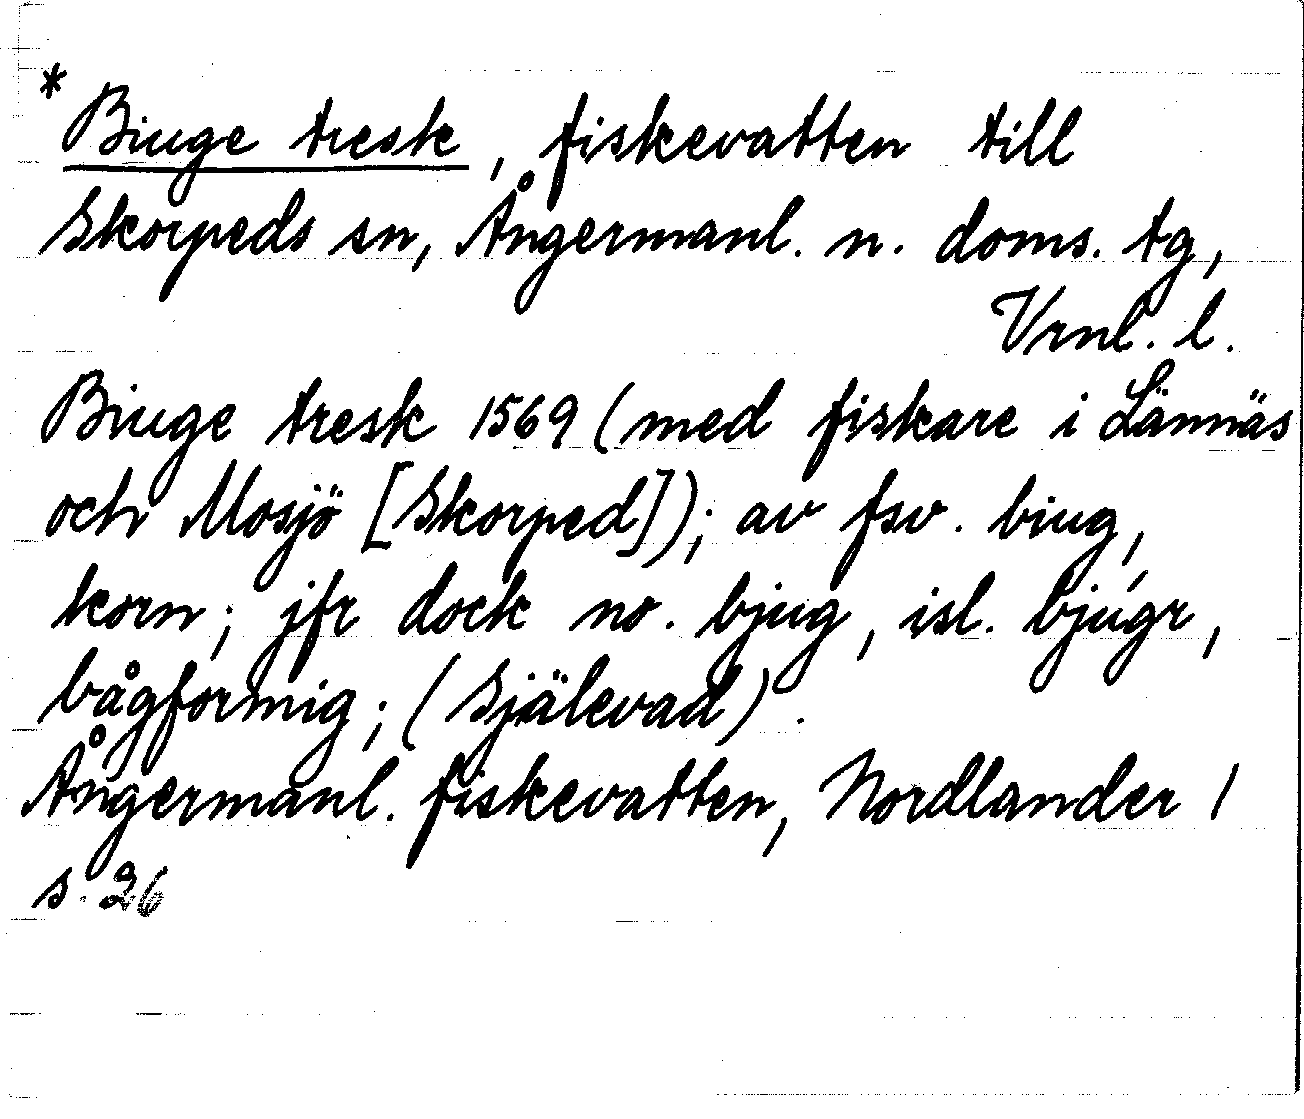 * Biuge tresk, fiskevatten till
Skorpeds sn, Ångermanl. n. doms. tg,
Vrnl. l.
Biuge tresk 1569 (med fiskare i Lännäs
och Mosjö [Skorped]); av fsv. biug,
korn; jfr dock no. bjug, isl. bjúgr,
bågformig; (Själevad).
Ångermanl. fiskevatten, Nordlander 1
s. 26